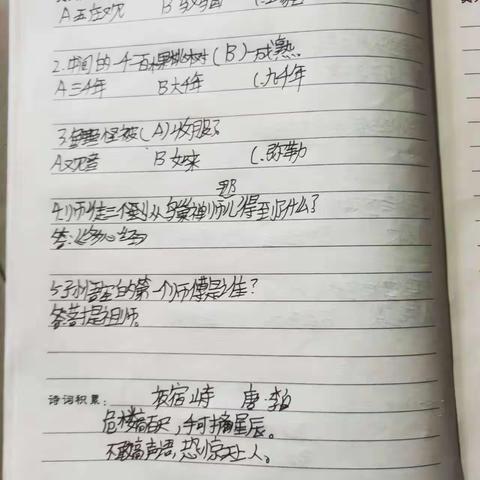 A五庄观 B
2.中间的一千二百棵桃树(B)成熟
A三千年 B六千年 C.九千年
3.怪被(A)收服了
A.观音 B如来 C.弥勒
那
4.师徒三个到从乌巢禅师儿得到什么了
答:心经
5.孙悟空的第一个师傅是谁?
答菩提祖师。
诗词积累: 夜宿山寺 唐·李白
危楼高百尺,手可摘星辰。
不敢高声语,恐惊天上人。